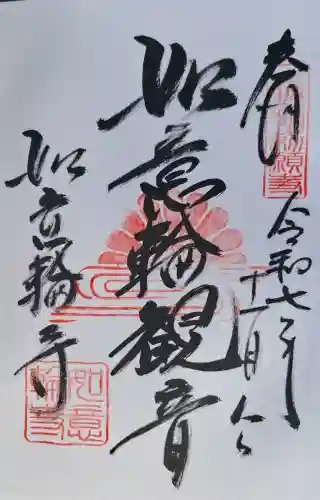 奉拝
令和七年
十一月
如意輪観音
如意輪寺
如意
輪寺